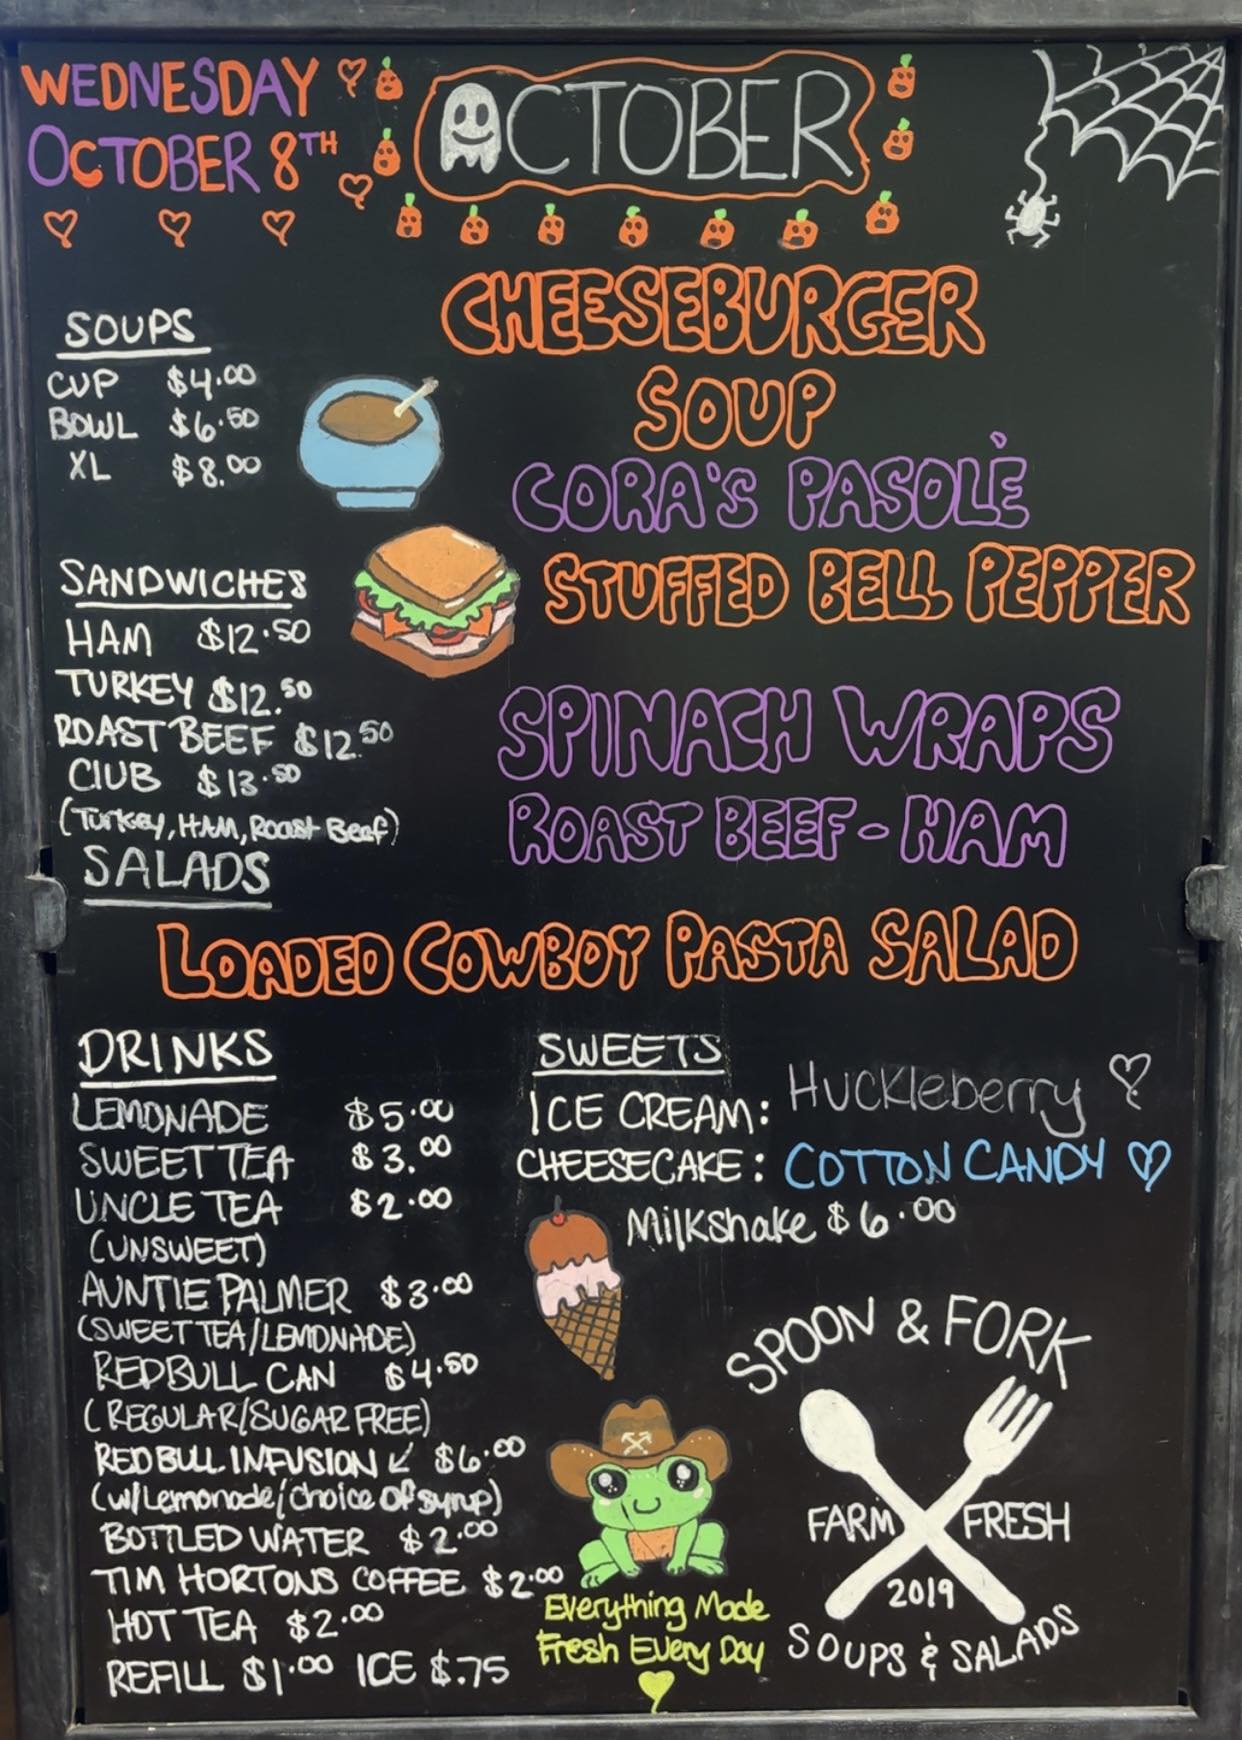 WEDNESDAY
OCTOBER 8TH
OCTOBER
SOUPS
CUP $4.00
BOWL $6.50
XL $8.00
CHEESEBURGER
SOUP
CORA'S PASOLÈ
STUFFED BELL PEPPER
SANDWICHES
HAM $12.50
TURKEY $12.50
ROAST BEEF $12.50
CLUB $13.50
(Turkey, HAM, Roast Beef)
SPINACH WRAPS
ROAST BEEF - HAM
SALADS
LOADED COWBOY PASTA SALAD
DRINKS
LEMONADE $5.00
SWEET TEA $3.00
UNCLE TEA $2.00
(UNSWEET)
AUNTIE PALMER $3.00
(SWEET TEA/LEMONADE)
REDBULL CAN $4.50
(REGULAR/SUGAR FREE)
REDBULL INFUSION ↙ $6.00
(w/Lemonade/choice OF syrup)
BOTTLED WATER $2.00
TIM HORTONS COFFEE $2.00
HOT TEA $2.00
REFILL $1.00 ICE $.75
SWEETS
ICE CREAM: Huckleberry
CHEESECAKE: COTTON CANDY
Milkshake $6.00
Everything Made
Fresh Every Day
SPOON & FORK
FARM FRESH
2019
SOUPS & SALADS